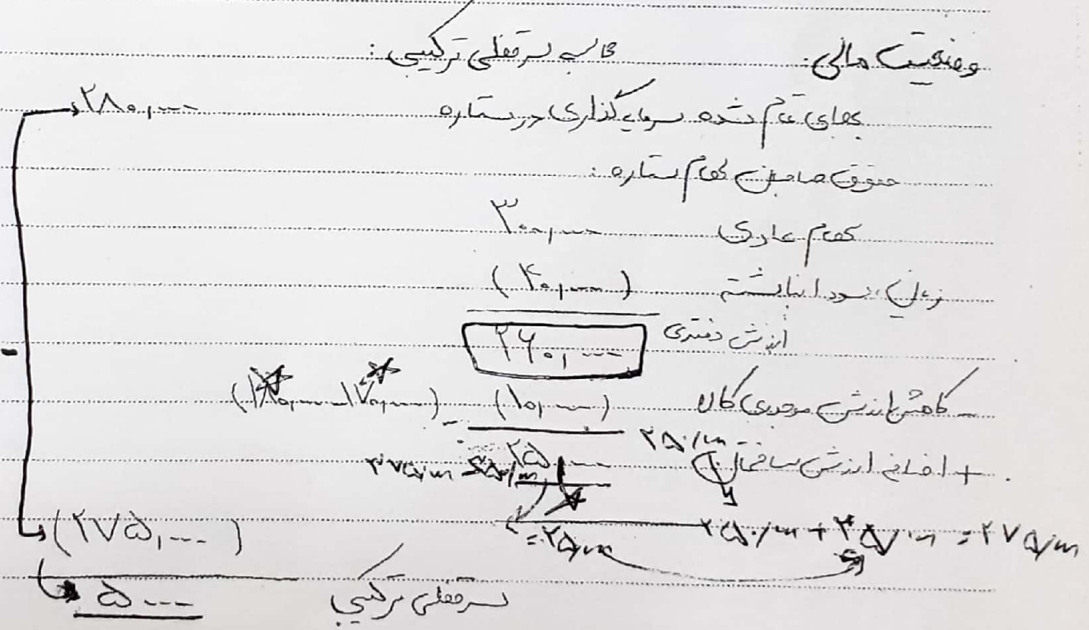 وضعیت مالی: محاسبه سرقفلی ترکیبی:
بهای تمام شده سرمایه‌گذاری در ستاره ۲۸۰,۰۰۰
حقوق صاحبان سهام ستاره:
سهام عادی ۳۰۰,۰۰۰
زیان، سود انباشته (۴۰,۰۰۰)
ارزش دفتری
۲۶۰,۰۰۰
- کاهش ارزش موجودی کالا (۱۰,۰۰۰)
+ اضافه ارزش ساختمان ۲۵۰/۰۰۰
(۲۷۵,۰۰۰)
سرقفلی ترکیبی ۵۰۰۰